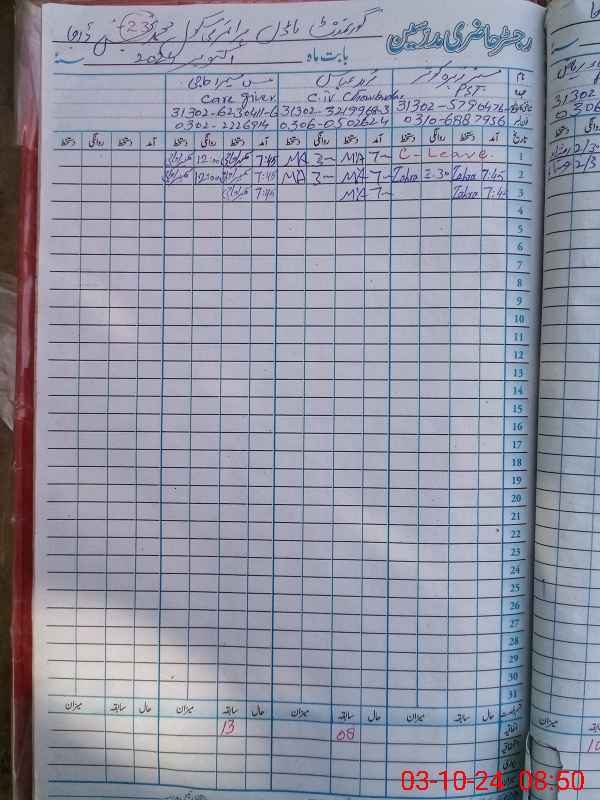 گورنمنٹ ماڈل پرائمری سکول
23
رجسٹر حاضری مدرسین
بابت ماہ اکتوبر 2024 سنہ
نام
PST C.iv Care giver
31302-5790476- 31302-3219968-3 31302-6230411-6
0310-6887956 0306-0502624 0302-2226914
تاریخ آمد دستخط روانگی دستخط آمد دستخط روانگی دستخط آمد دستخط روانگی دستخط آمد دستخط روانگی دستخط
1 C-Leave. 7- MA 3- MA 7:45 12:00
2 7:45 Zahra 2:30 Zahra 7- MA 3- MA 7:45 12:00
3 7:45 Zahra 7- MA 7:45
4
5
6
7
8
9
10
11
12
13
14
15
16
17
18
19
20
21
22
23
24
25
26
27
28
29
30
31
حال سابقہ میزان حال سابقہ میزان حال سابقہ میزان حال سابقہ میزان
08 13
03-10-24 08:50